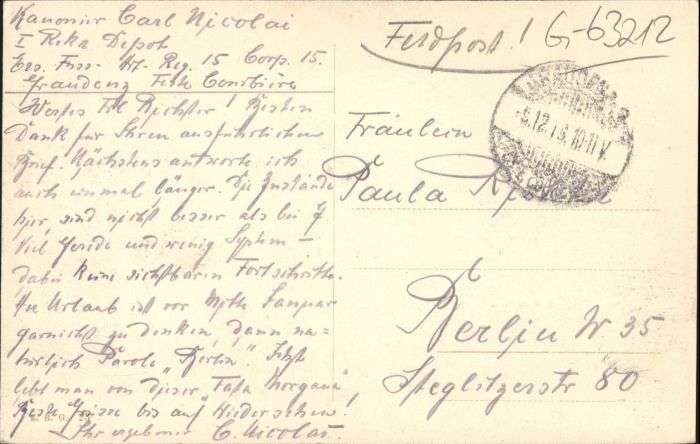 Kanonier Carl Nicolai
I Rekr Depot
Ers. Fuss- Art. Reg. 15 Corp. 15.
Graudenz Feste Courbière
Wertes Frl Richter! Besten
Dank für Ihren ausführlichen
Brief. Nächstens antworte ich
auch einmal länger. Die Zustände
hier sind nicht besser als bei J
Viel Gerede und wenig System –
dabei keine sichtbaren Fortschritte.
An Urlaub ist vor Mitte Januar
garnicht zu denken, dann na=
türlich Parole „Berlin". Jetzt
lebt man von dieser „Fata Morgana"
Beste Grüsse bis auf Wiedersehen!
Ihr ergebener C. Nicolai
Feldpost! G-63212
12.18. 10-11 V.
Fräulein
Paula
Berlin W 35
Steglitzerstr 80